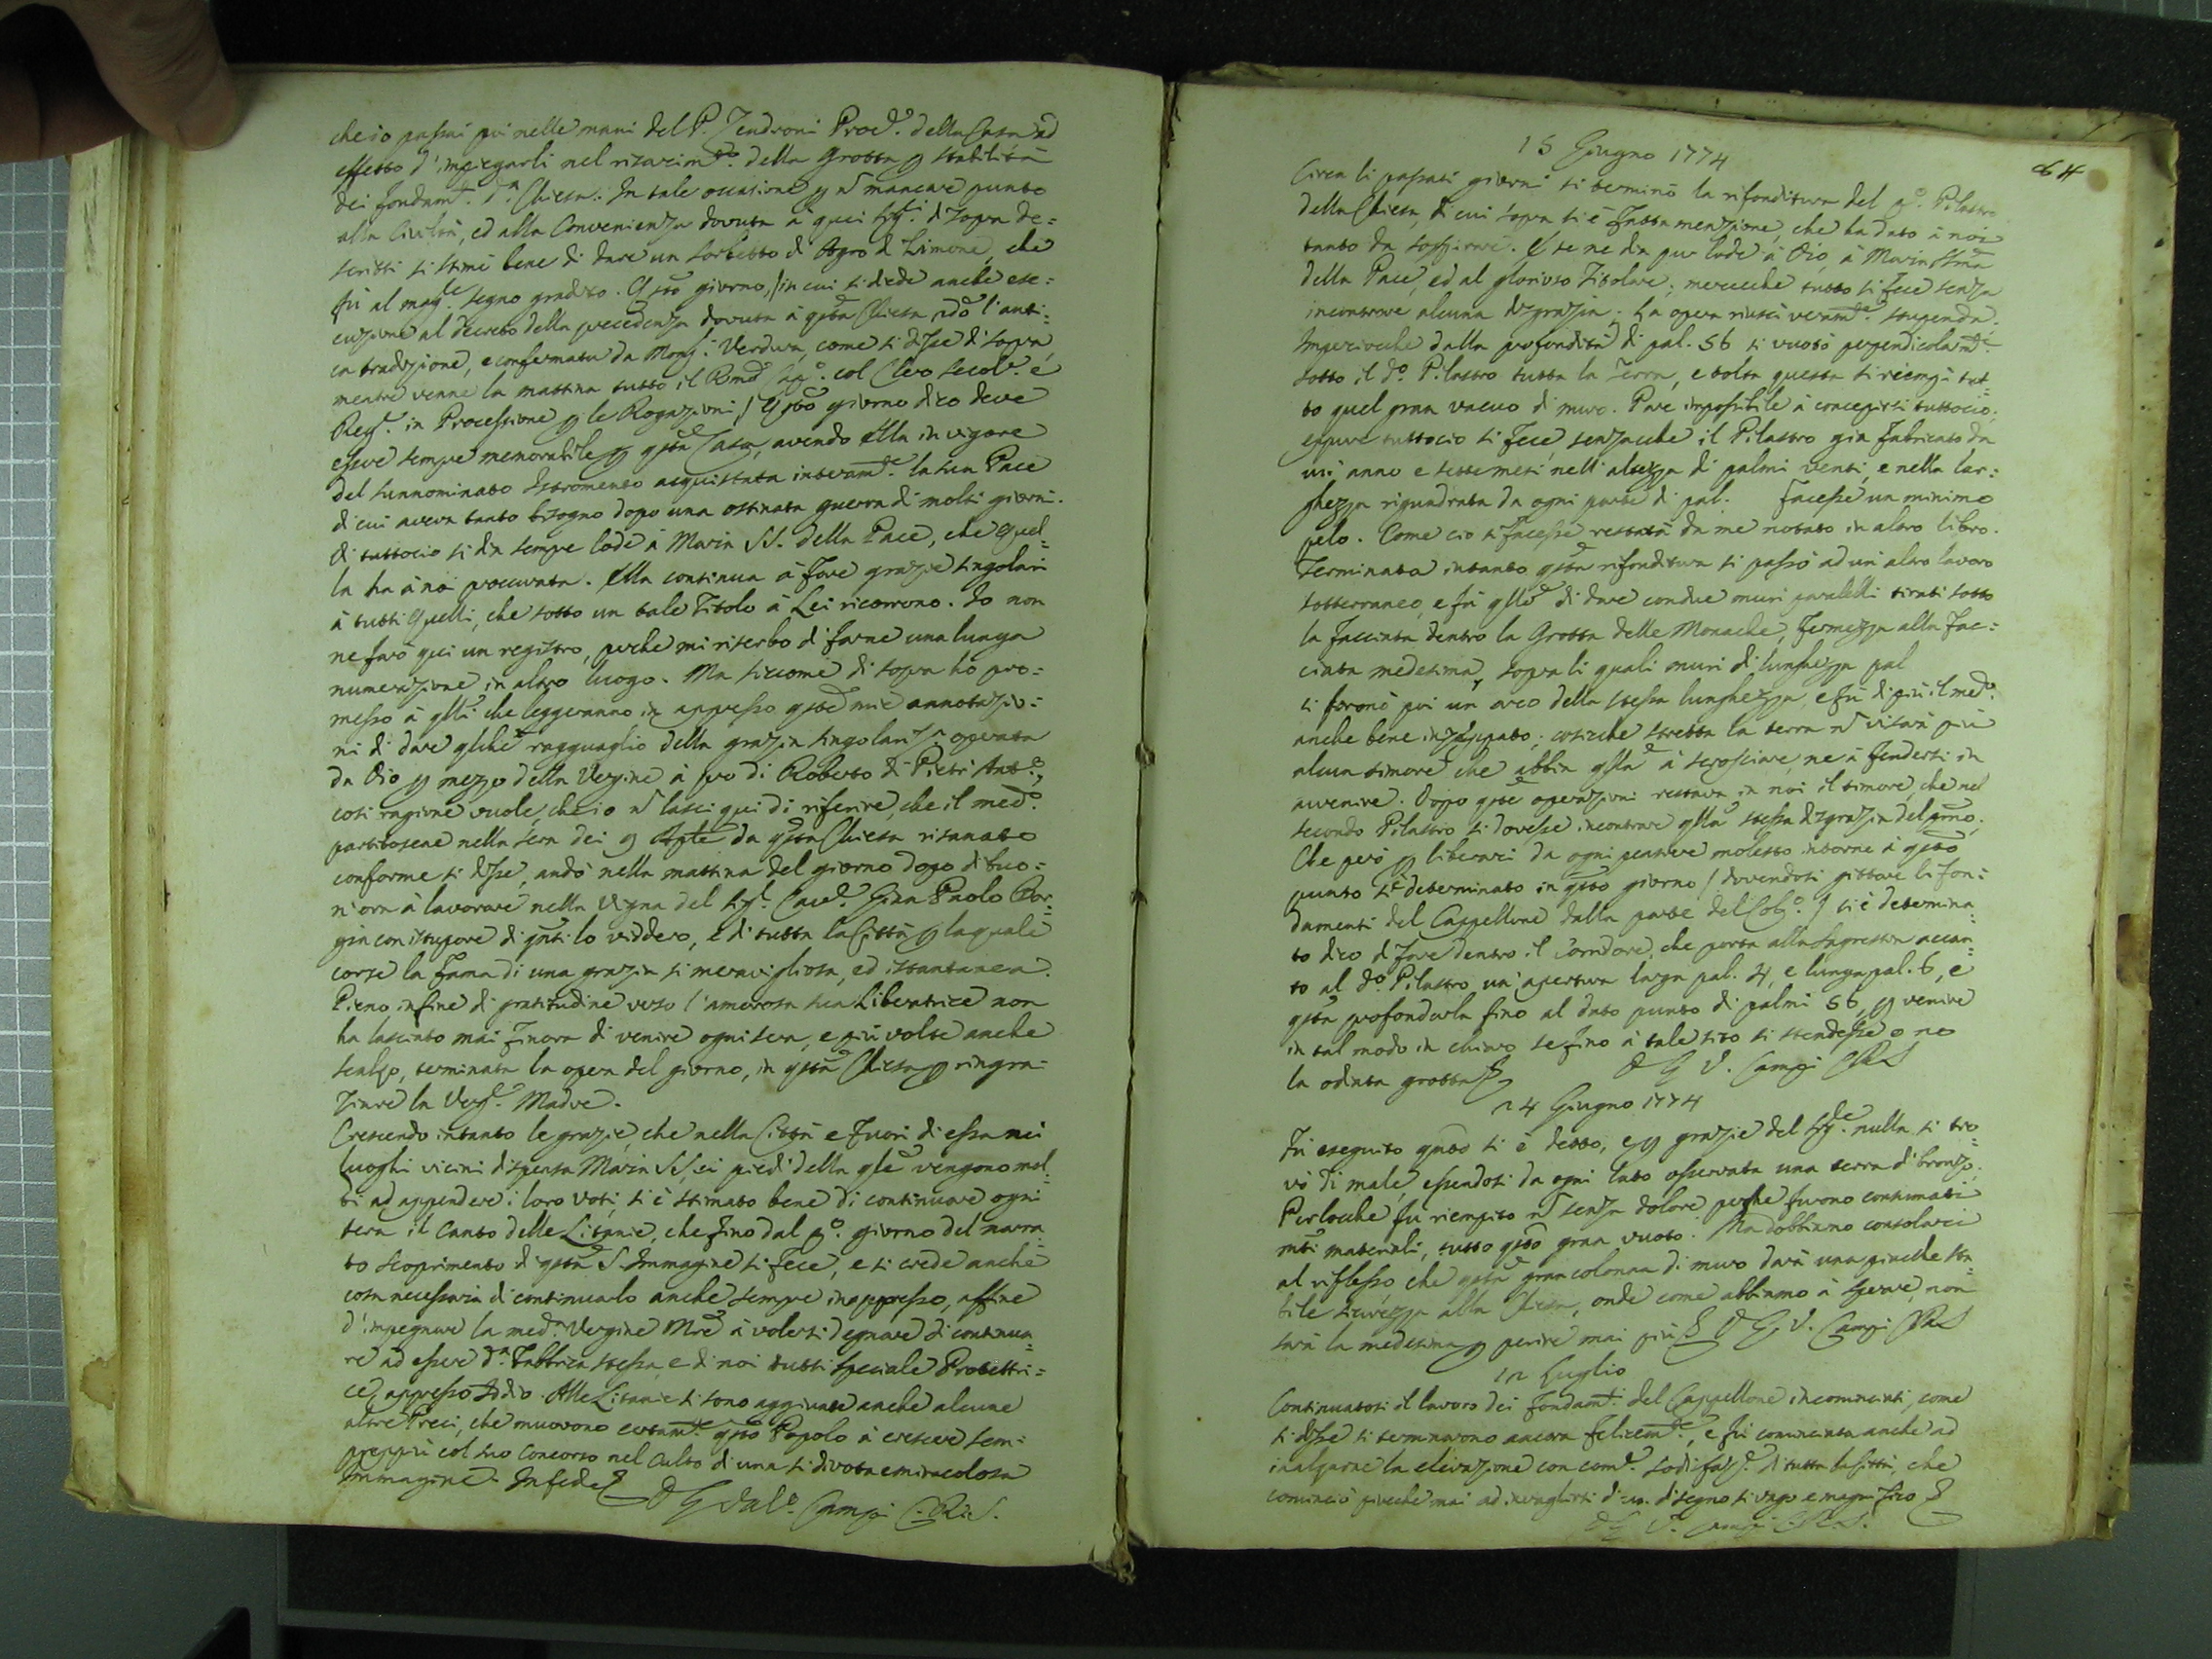 che io passai poi nelle mani del P. Zendroni Proc.e della Casa ad
effetto d'impiegarli nel risarcim.to della Grotta p stabilità
dei fondam.ti d.a Chiesa: In tale occasione p ñ mancare punto
alla Civiltà, ed alla Convenienza dovuta à quei Sig.ri di sopra de=
scritti si stimò bene di dare un sorbetto di Agro di Limone, che
fù al mag.re segno gradito. Q.sto giorno, /in cui si diede anche ese=
cuzione al decreto della precedenza dovuta à q.sta Chiesa 2do l'anti=
ca tradizione, e confermata da Mons.r Verdura, come si disse di sopra,
mentre venne la mattina tutto il R.mo Cap.o col Clero Secol.e e
Reg.e in Processione p le Rogazioni / Q.sto giorno dico deve
essere sempre memorabile p q.sta Casa, avendo ella in vigore
del sunnominato Istromento acquistata interam.te la sua Pace
di cui aveva tanto bisogno dopo una ostinata guerra di molti giorni.
Di tuttocio si dia sempre lode à Maria SS. della Pace, che quel=
la ha à noi procurata. Ella continua à fare grazie singolari
à tutti quelli, che sotto un tale Titolo à Lei ricorrono. Io non
ne farò qui un registro, perche mi riserbo di farne una lunga
numerazione in altro luogo. Ma siccome di sopra hò pro=
messo à q.lli che leggeranno in appresso q.ste mie annotazio=
ni di dare q.lche ragguaglio della grazia singolariss.a operata
da Dio p mezzo della Vergine à pro di Roberto di Pietri Ant.o,
cosi ragione vuole, che io ñ lasci qui di riferire, che il med.o
partitosene nella sera dei 9 Aple da q.sta Chiesa risanato
conforme si disse, andò nella mattina del giorno dopo di buo=
n'ora à lavorare nella Vigna del Sig.r Cav.e Gian Paolo Bor=
gia con istupore di q.nti lo viddero, e di tutta la Città p la quale
corse la fama di una grazia si meravigliosa, ed istantanea.
Pieno infine di gratitudine verso l'amorosa sua Liberatrice non
ha lasciato mai finora di venire ogni sera, e più volte anche
scalzo, terminata la opera del giorno, in q.sta Chiesa p ringra=
ziare la Verg.e Madre.
Crescendo intanto le grazie, che nella Città e fuori di essa nei
luoghi vicini dispensa Maria SS, ai piedi della q.le vengono mol=
ti ad appendere i loro Voti, si è stimato bene di continuare ogni
sera il Canto delle Litanie, che fino dal p.o giorno del narra=
to scoprimento di q.sta S. Immagine si fece, e si crede anche
cosa necessaria di continuarlo anche sempre in appresso, affine
d'impegnare la med.a Vergine Mre à volersi degnare di continua=
re ad essere d.a Fabbrica stessa, e di noi tutti speciale Protettri=
ce appresso Iddio. Alle Litanie si sono aggiunte anche alcune
altre Preci, che muovono certam.te q.sto Popolo à crescere sem=
preppiù col suo Concorso nel Culto di una si divota e miracolosa
Immagine. In fede
D G Val.o Campi C.R.S.
64
15 Giugno 1774
Circa li passati giorni si terminò la rifonditura del p.o Pilastro
della Chiesa, di cui sopra si è fatta menzione, che ha dato à noi
tanto da sospirare. E se ne dia pur lode à Dio, à Maria SSma
della Pace, ed al glorioso Titolare; mercecche tutto si fece senza
incontrare alcuna disgrazia. La opera riuscì veram.te stupenda.
Imperciocche dalla profondità di pal. 56 si vuotò perpendicolarm.te
sotto il d.o Pilastro tutta la Terra, e tolta questa si riempì tut=
to quel gran vacuo di muro. Pare impossibile à concepirsi tuttociò,
eppure tuttocio si fece, senzacche il Pilastro gia fabricato da
un'anno e sette mesi nell'altezza di palmi venti, e nella lar=
ghezza riquadrata da ogni parte di pal. facesse un minimo
pelo. Come cio si facesse restarà da me notato in altro libro.
Terminata intanto q.sta rifonditura si passò ad un'altro lavoro
sotterraneo, e fù q.llo di dare con due muri paralelli tirati sotto
la facciata dentro la Grotta delle Monache, fermezza alla fac=
ciata medesima, sopra li quali muri di lunghezza pal
si formò poi un arco della stessa lunghezza, e fù di più il med.o
anche bene inzeppato; cosicche stretta la terra ñ visarà più
alcun timore che abbia q.lla à scrosciare, ne à fendersi in
avvenire. Dopo q.ste operazioni restava in noi il timore, che nel
secondo Pilastro si dovesse incontrare q.lla stessa disgrazia del p.mo.
Che però p liberarci da ogni pensiere molesto intorno à q.sto
punto si è determinato in q.sto giorno / dovendosi gittare li fon=
damenti del Cappellone dalla parte del Coll.o / si è determina=
to dico di fare dentro il Corridore, che porta alla Sagrestia accan=
to al d.o Pilastro un'apertura larga pal. 4, e lunga pal. 6, e
q.sta profondarla fino al dato punto di palmi 56, p venire
in tal modo in chiaro se fino à tale sito si stendesse o no
la odiata grotta
D G V. Campi CRS
24 Giugno 1774
Fù eseguito q.nto si è detto, e p grazie del Sig.re nulla si tro=
vò di male, essendosi da ogni lato osservata una terra di bronzo.
Perlocche fu riempito ñ senza dolore perche furono consumati
m.ti materiali, tutto q.sto gran vuoto. Ma dobbiamo consolarci
al riflesso che q.sta gran colonna di muro darà una piucche sta=
bile sicurezza alla Chiesa, onde come abbiamo à sperare, non
sarà la medesima p perire mai più D G, V. Campi CRS
12 Luglio
Continuatosi il lavoro dei fondam.ti del Cappellone incominciati, come
si disse si terminarono ancora felicem.te, e fù cominciata anche ad
inalzarne la elevazione con com.e sodisfaz.e di tutta la Città, che
cominciò piucche mai ad invaghirsi di un disegno si vago e magnifico
D G V. Campi C.R.S.